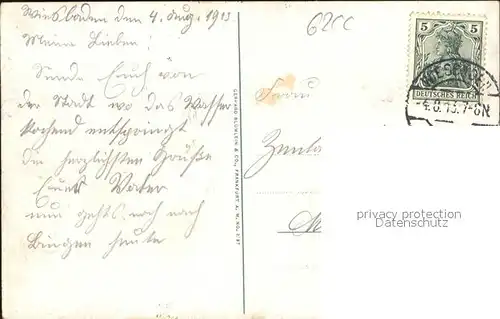 Wiesbaden den 4. Aug. 1913
6200
Meine Lieben!
Sende Euch von
der Stadt wo das Wasser
kochend entspringt
die herzlichsten Grüße
Euer Vater
nun gehts noch nach
Bingen heute
GERHARD BLÜMLEIN & CO., FRANKFURT A. M.
5 5
DEUTSCHES REICH
WIESBADEN
4.8.13.7-8N
Frau
privacy protection
Datenschutz